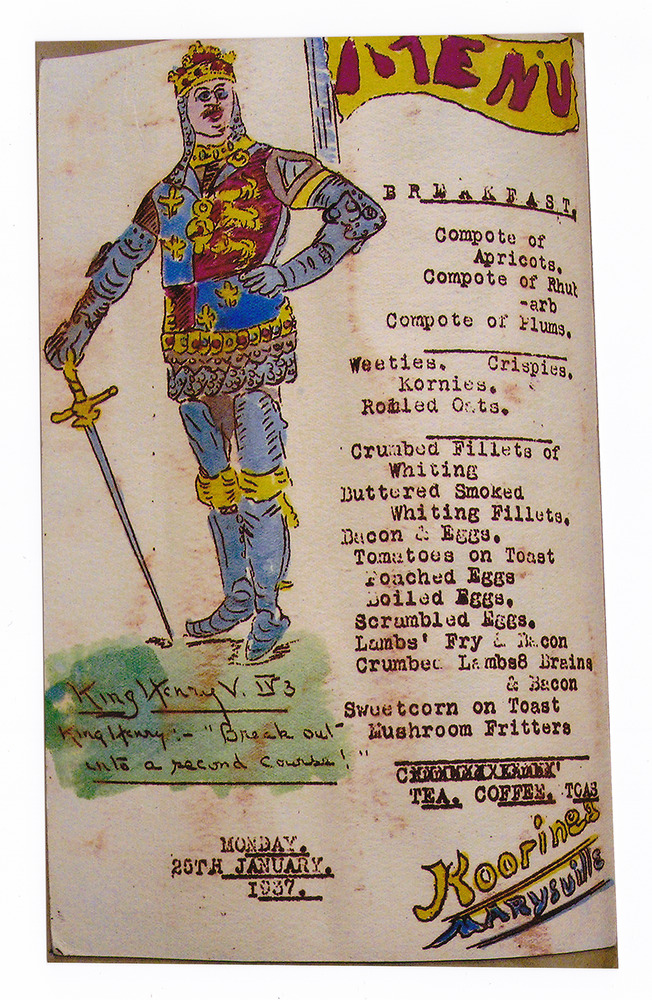 MENU
BREAKFAST.
Compote of
Apricots.
Compote of Rhub
-arb
Compote of Plums.
Weeties. Crispies.
Kornies.
Rolled Oats.
Crumbed Fillets of
Whiting
Buttered Smoked
Whiting Fillets.
Bacon & Eggs.
Tomatoes on Toast
Poached Eggs
Boiled Eggs.
Scrambled Eggs.
Lambs' Fry & Bacon
Crumbed Lambs8 Brains
& Bacon
Sweetcorn on Toast
Mushroom Fritters
TEA. COFFEE. TOAS
King Henry V. IV 3
King Henry :- "Break out
into a second course!"
MONDAY.
25TH JANUARY.
1937.
Koorines
MARYSVille